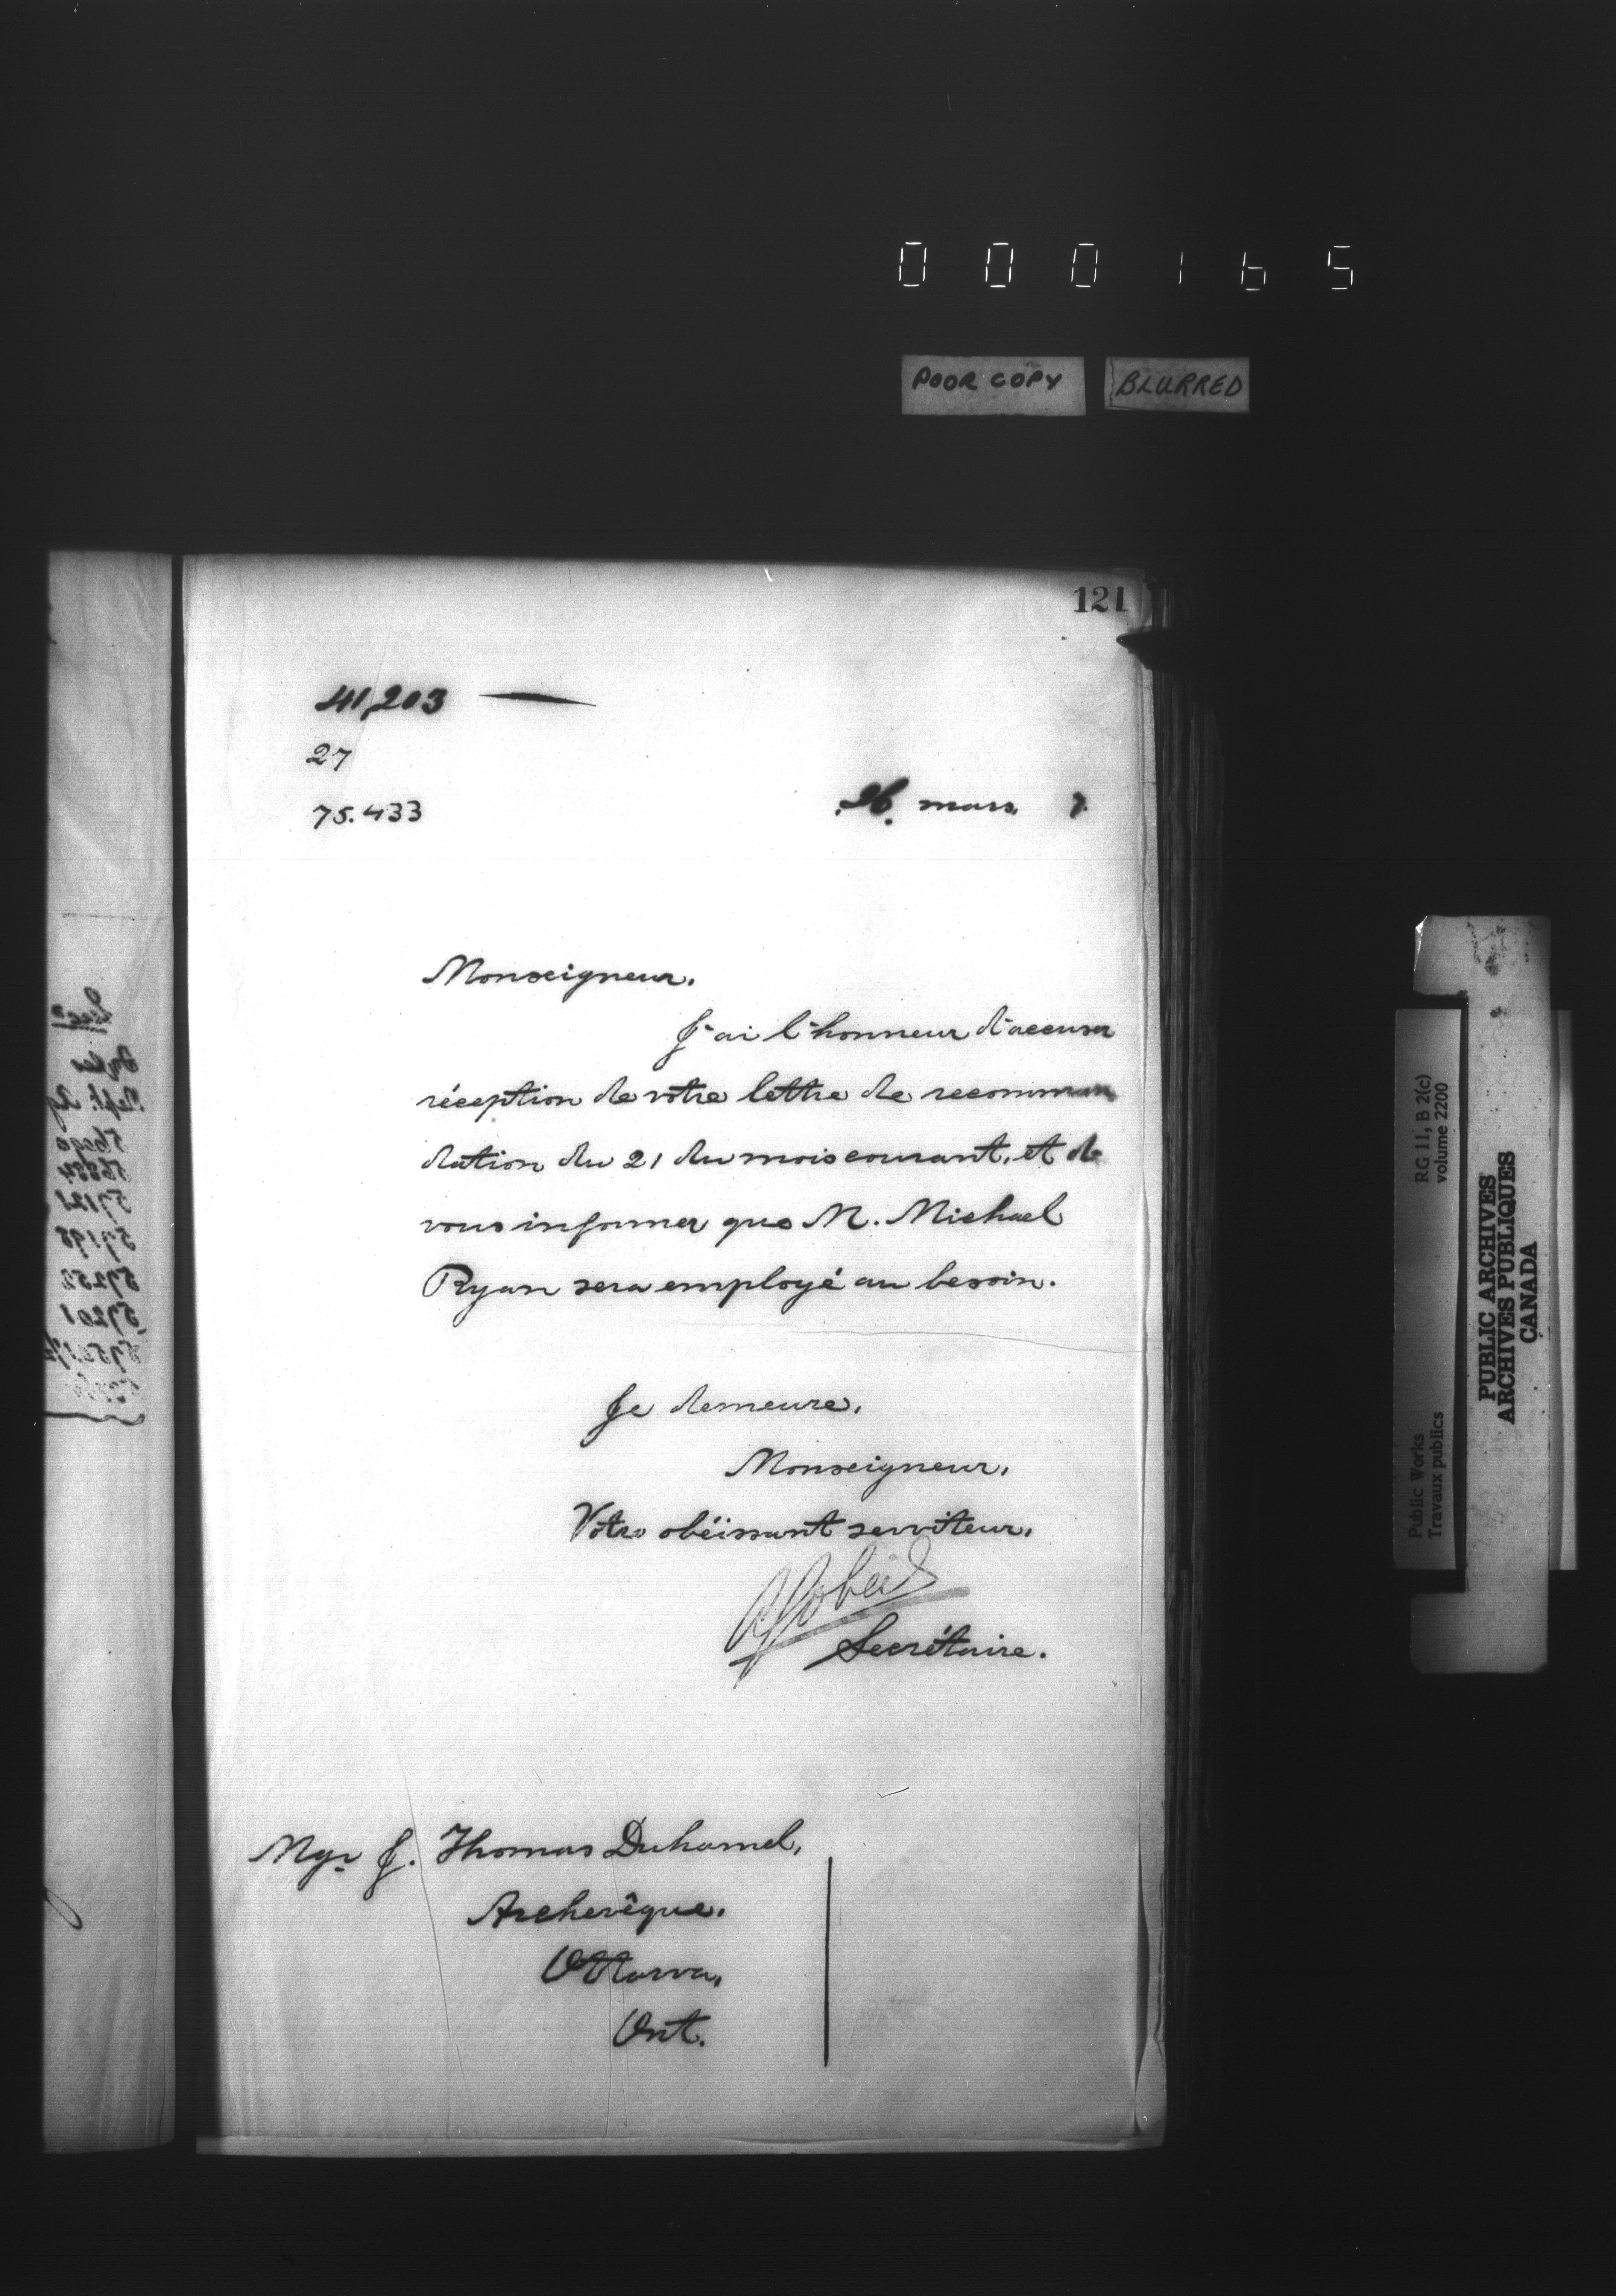 000165
POOR COPY BLURRED
121
41,203
27
75.433
26. mars. 7.
Monseigneur.
J'ai l'honneur d'accuser
réception de votre lettre de recomman
dation du 21 du mois courant, et de
vous informer que M. Michael
Ryan sera employé au besoin.
Je demeure,
Monseigneur,
Votre obéissant serviteur,
AGobeil
Secrétaire.
Mgr J. Thomas Duhamel,
Archevêque.
Ottawa,
Ont.
RG 11, B 2(c)
volume 2200
Public Works
Travaux publics
PUBLIC ARCHIVES
ARCHIVES PUBLIQUES
CANADA